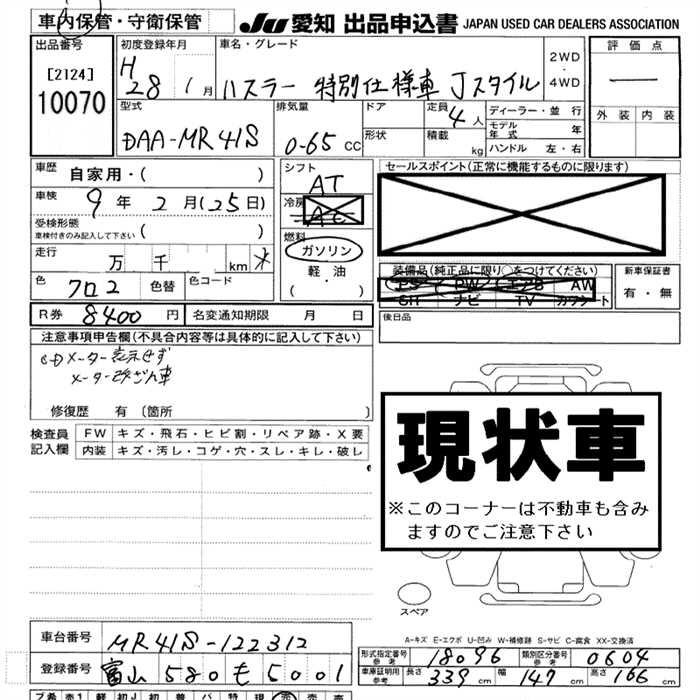 車内保管・守衛保管
JU 愛知 出品申込書 JAPAN USED CAR DEALERS ASSOCIATION
出品番号
[2124]
10070
初度登録年月
H
28 1月
車名・グレード
ハスラー 特別仕様車 Jスタイル
2WD
・
4WD
評価点
外装 内装
型式
DAA-MR41S
排気量
0-65 CC
ドア
形状
定員 4人
積載 kg
ディーラー・並行
モデル年式 年
ハンドル 左・右
車歴 自家用・( )
車検 9年 2月(25日)
受検形態
車検付きのみ記入して下さい ( )
走行 万 千 km
色 クロ2 色替 色コード
シフト
AT
冷房
AC
燃料
ガソリン
軽油
( ・ )
セールスポイント(正常に機能するものに限ります)
装備品(純正品に限り○をつけてください)
PS PW エアB AW
SH ナビ TV カワシート
新車保証書
有・無
R券 8400円 名変通知期限 月 日
後日品
注意事項申告欄(不具合内容等は具体的に記入して下さい)
メーター表示せず
メーター改ざん車
修復歴 有〔箇所 〕
検査員
記入欄
FW キズ・飛石・ヒビ割・リペア跡・X要
内装 キズ・汚レ・コゲ・穴・スレ・キレ・破レ
現状車
※このコーナーは不動車も含み
ますのでご注意下さい
スペア
A-キズ E-エクボ U-凹み W-補修跡 S-サビ C-腐食 XX-交換済
車台番号 MR41S-122312
登録番号 富山 580 も 5001
形式指定番号
参考
18096
類別区分番号
参考
0604
車庫証明用
参考
長さ 339 cm 幅 147 cm 高さ 166 cm